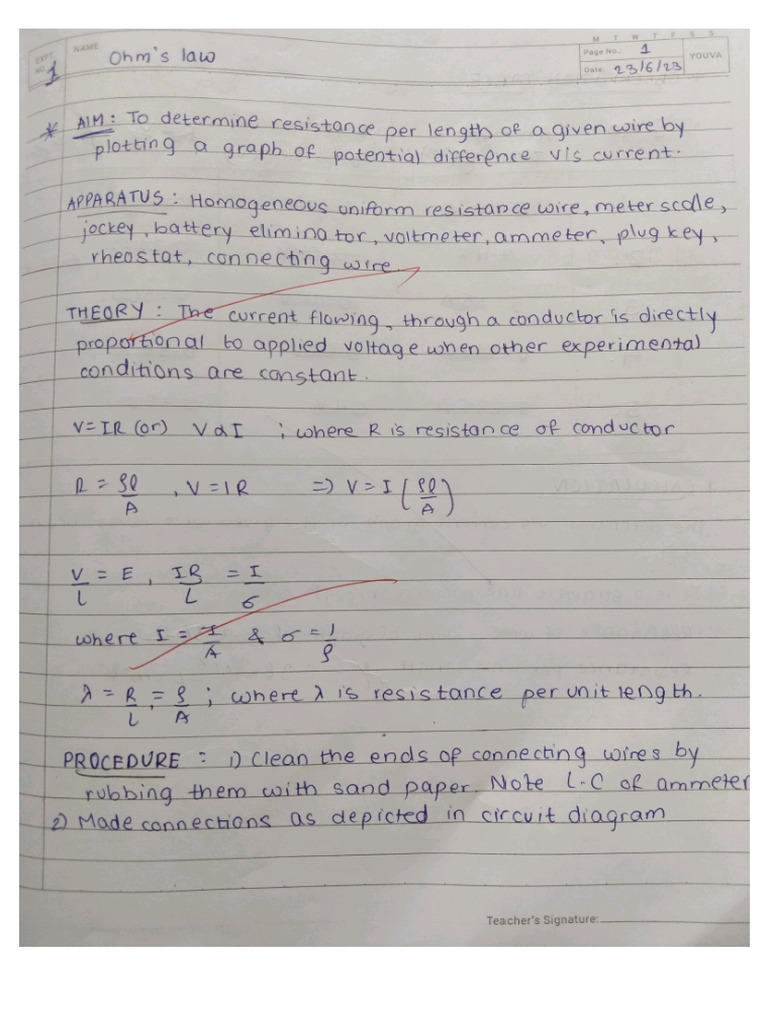 M T W T F S S
EXPT NO. 1 NAME Ohm's law Page No.: 1 YOUVA
Date: 23/6/23
* AIM: To determine resistance per length of a given wire by
plotting a graph of potential difference v/s current.
APPARATUS: Homogeneous uniform resistance wire, meter scale,
jockey, battery eliminator, voltmeter, ammeter, plug key,
rheostat, connecting wire
THEORY: The current flowing, through a conductor is directly
proportional to applied voltage when other experimental
conditions are constant.
V=IR (or) V α I ; where R is resistance of conductor
R = ρl/A , V = IR => V = I (ρl/A)
V/L = E, IR/L = I/σ
where I = I/A & σ = 1/ρ
λ = R/L = ρ/A ; where λ is resistance per unit length.
PROCEDURE : 1) Clean the ends of connecting wires by
rubbing them with sand paper. Note L.C of ammeter
2) Made connections as depicted in circuit diagram
Teacher's Signature: